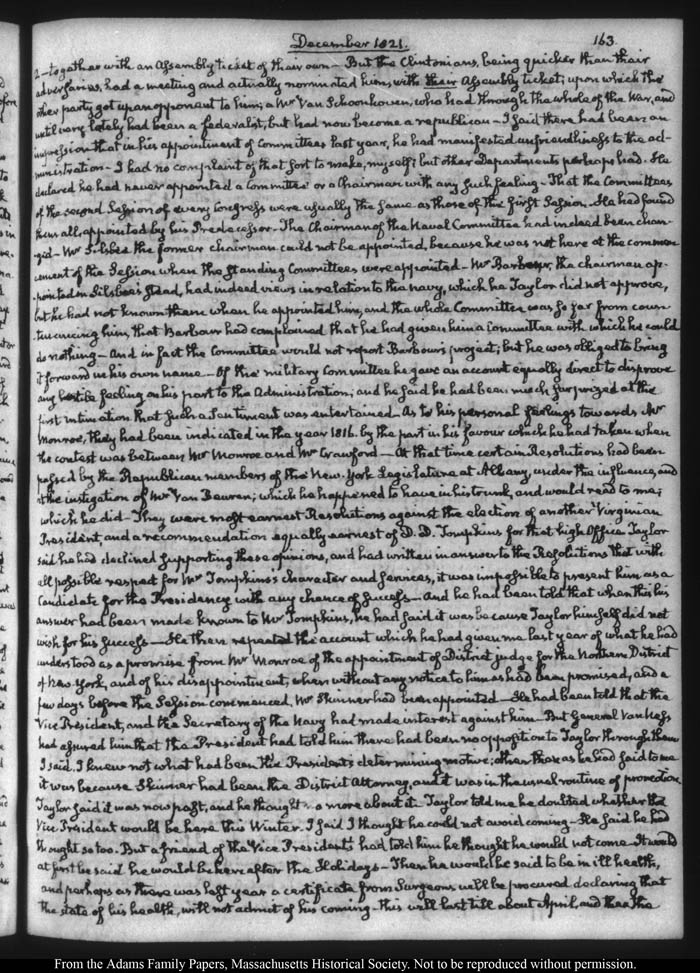 December 1821.
163.
2 - together with an Assembly ticket of their own - But the Clintonians, being quicker than their
adversaries, had a meeting and actually nominated him, with their Assembly ticket; upon which the
other party got up an opponent to him; a Mr Van Schoonhoven, who had through the whole of the War, and
until very lately had been a federalist, but had now become a republican - I said there had been an
impression that in his appointment of Committees last year, he had manifested unfriendliness to the ad-
ministration - I had no complaint of that sort to make, myself; but other Departments perhaps had. He
declared he had never appointed a Committee or a Chairman with any such feeling - That the Committees
of the second Session of every Congress were usually the same as those of the first Session. He had found
them all appointed by his Predecessor - The Chairman of the Naval Committee had indeed been chan-
ged - Mr Silsbee the former chairman could not be appointed, because he was not here at the commen
cement of the Session when the standing Committees were appointed - Mr Barbour, the chairman ap-
pointed in Silsbee's stead, had indeed views in relation to the navy, which he Taylor did not approve,
but he had not known them when he appointed him, and the whole Committee was so far from coun-
tenancing him, that Barbour had complained that he had given him a Committee with which he could
do nothing - And in fact the Committee would not report Barbour's project; but he was obliged to bring
it forward in his own name - Of the military Committee he gave an account equally direct to disprove
any hostile feeling on his part to the Administration; and he said he had been much surprized at the
first intimation that such a sentiment was entertained. As to his personal feelings towards Mr
Monroe, they had been indicated in the year 1816. by the part in his favour which he had taken when
the contest was between Mr Monroe and Mr Crawford - At that time certain Resolutions had been
passed by the Republican members of the New-York Legislature at Albany, under the influence, and
at the instigation of Mr Van Beuren; which he happened to have in his trunk, and would read to me;
which he did - They were most earnest Resolutions against the election of another Virginian
President, and a recommendation equally earnest of D. D. Tompkins for that high Office. Taylor
said he had declined supporting these opinions, and had written in answer to the Resolutions that with
all possible respect for Mr Tompkins's character and services, it was impossible to present him as a
Candidate for the Presidency with any chance of success - And he had been told that when this his
answer had been made known to Mr Tompkins, he had said it was because Taylor himself did not
wish for his success - He then repeated the account which he had given me last year of what he had
understood as a promise from Mr Monroe of the appointment of District judge for the Northern District
of New-York, and of his disappointment, when without any notice to him as had been promised, and a
few days before the Session commenced, Mr Skinner had been appointed - He had been told that the
Vice President, and the Secretary of the Navy had made interest against him - But General Van Ness
had assured him that the President had told him there had been no opposition to Taylor through them
I said I knew not what had been the President's determining motive; other than as he had said to me
it was because Skinner had been the District Attorney, and it was in the usual routine of promotion.
Taylor said it was now past, and he thought no more about it. Taylor told me he doubted whether the
Vice President would be here this Winter. I said I thought he could not avoid coming - He said he had
thought so too. But a friend of the Vice President's had told him he thought he would not come. It would
at first be said he would be here after the Holidays - Then he would be said to be in ill health,
and perhaps as there was last year a certificate from Surgeons will be procured declaring that
the state of his health, will not admit of his coming - this will last till about April, and then the
From the Adams Family Papers, Massachusetts Historical Society. Not to be reproduced without permission.